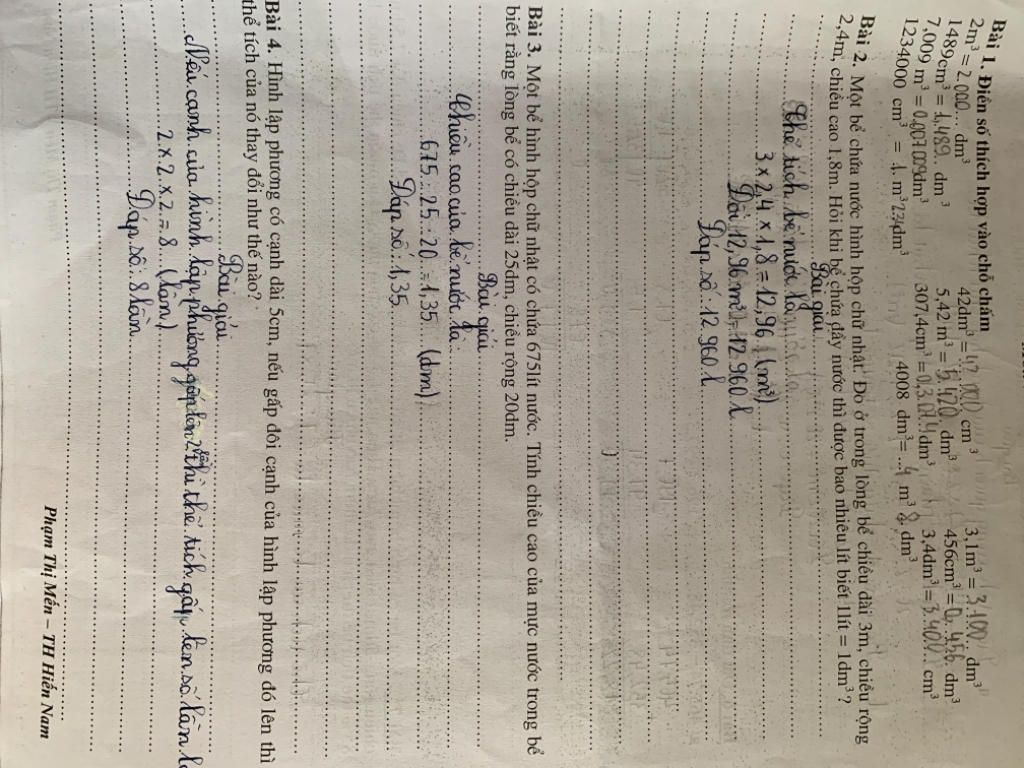 Bài 1. Điền số thích hợp vào chỗ chấm
2m³ = 2 000... dm³ 42dm³ = 42 000 cm³ 3,1m³ = 3 100 dm³
1489cm³ = 1,489. dm³ 5,42 m³ = 5 420. dm³ 456cm³ = 0, 456 dm³
7,009 m³ = dm³ 307,4cm³ = 0,3074 dm³ 3,4dm³ = 3 400. cm³
1234000 cm³ = 1. m³ 234 dm³ 4008 dm³ = ...4 m³ 8 dm³
Bài 2. Một bể chứa nước hình hộp chữ nhật. Đo ở trong lòng bể chiều dài 3m, chiều rộng
2,4m, chiều cao 1,8m. Hỏi khi bể chứa đầy nước thì được bao nhiêu lít biết 1lít = 1dm³ ?
Bài giải
Thể tích bể nước là
3 x 2,4 x 1,8 = 12,96 (m³)
Đổi 12,96 m³ = 12 960 l
Đáp số: 12 960 l
Bài 3. Một bể hình hộp chữ nhật có chứa 675lít nước. Tính chiều cao của mực nước trong bể
biết rằng lòng bể có chiều dài 25dm, chiều rộng 20dm.
Bài giải
Chiều cao của bể nước là:
675 : 25 : 20 = 1,35 (dm)
Đáp số: 1,35
Bài 4. Hình lập phương có cạnh dài 5cm, nếu gấp đôi cạnh của hình lập phương đó lên thì
thể tích của nó thay đổi như thế nào?
Bài giải
Nếu cạnh của hình lập phương gấp lên 2 lần thì thể tích gấp lên số lần l
2 x 2 x 2 = 8 (lần)
Đáp số: 8 lần
Phạm Thị Mến – TH Hiến Nam